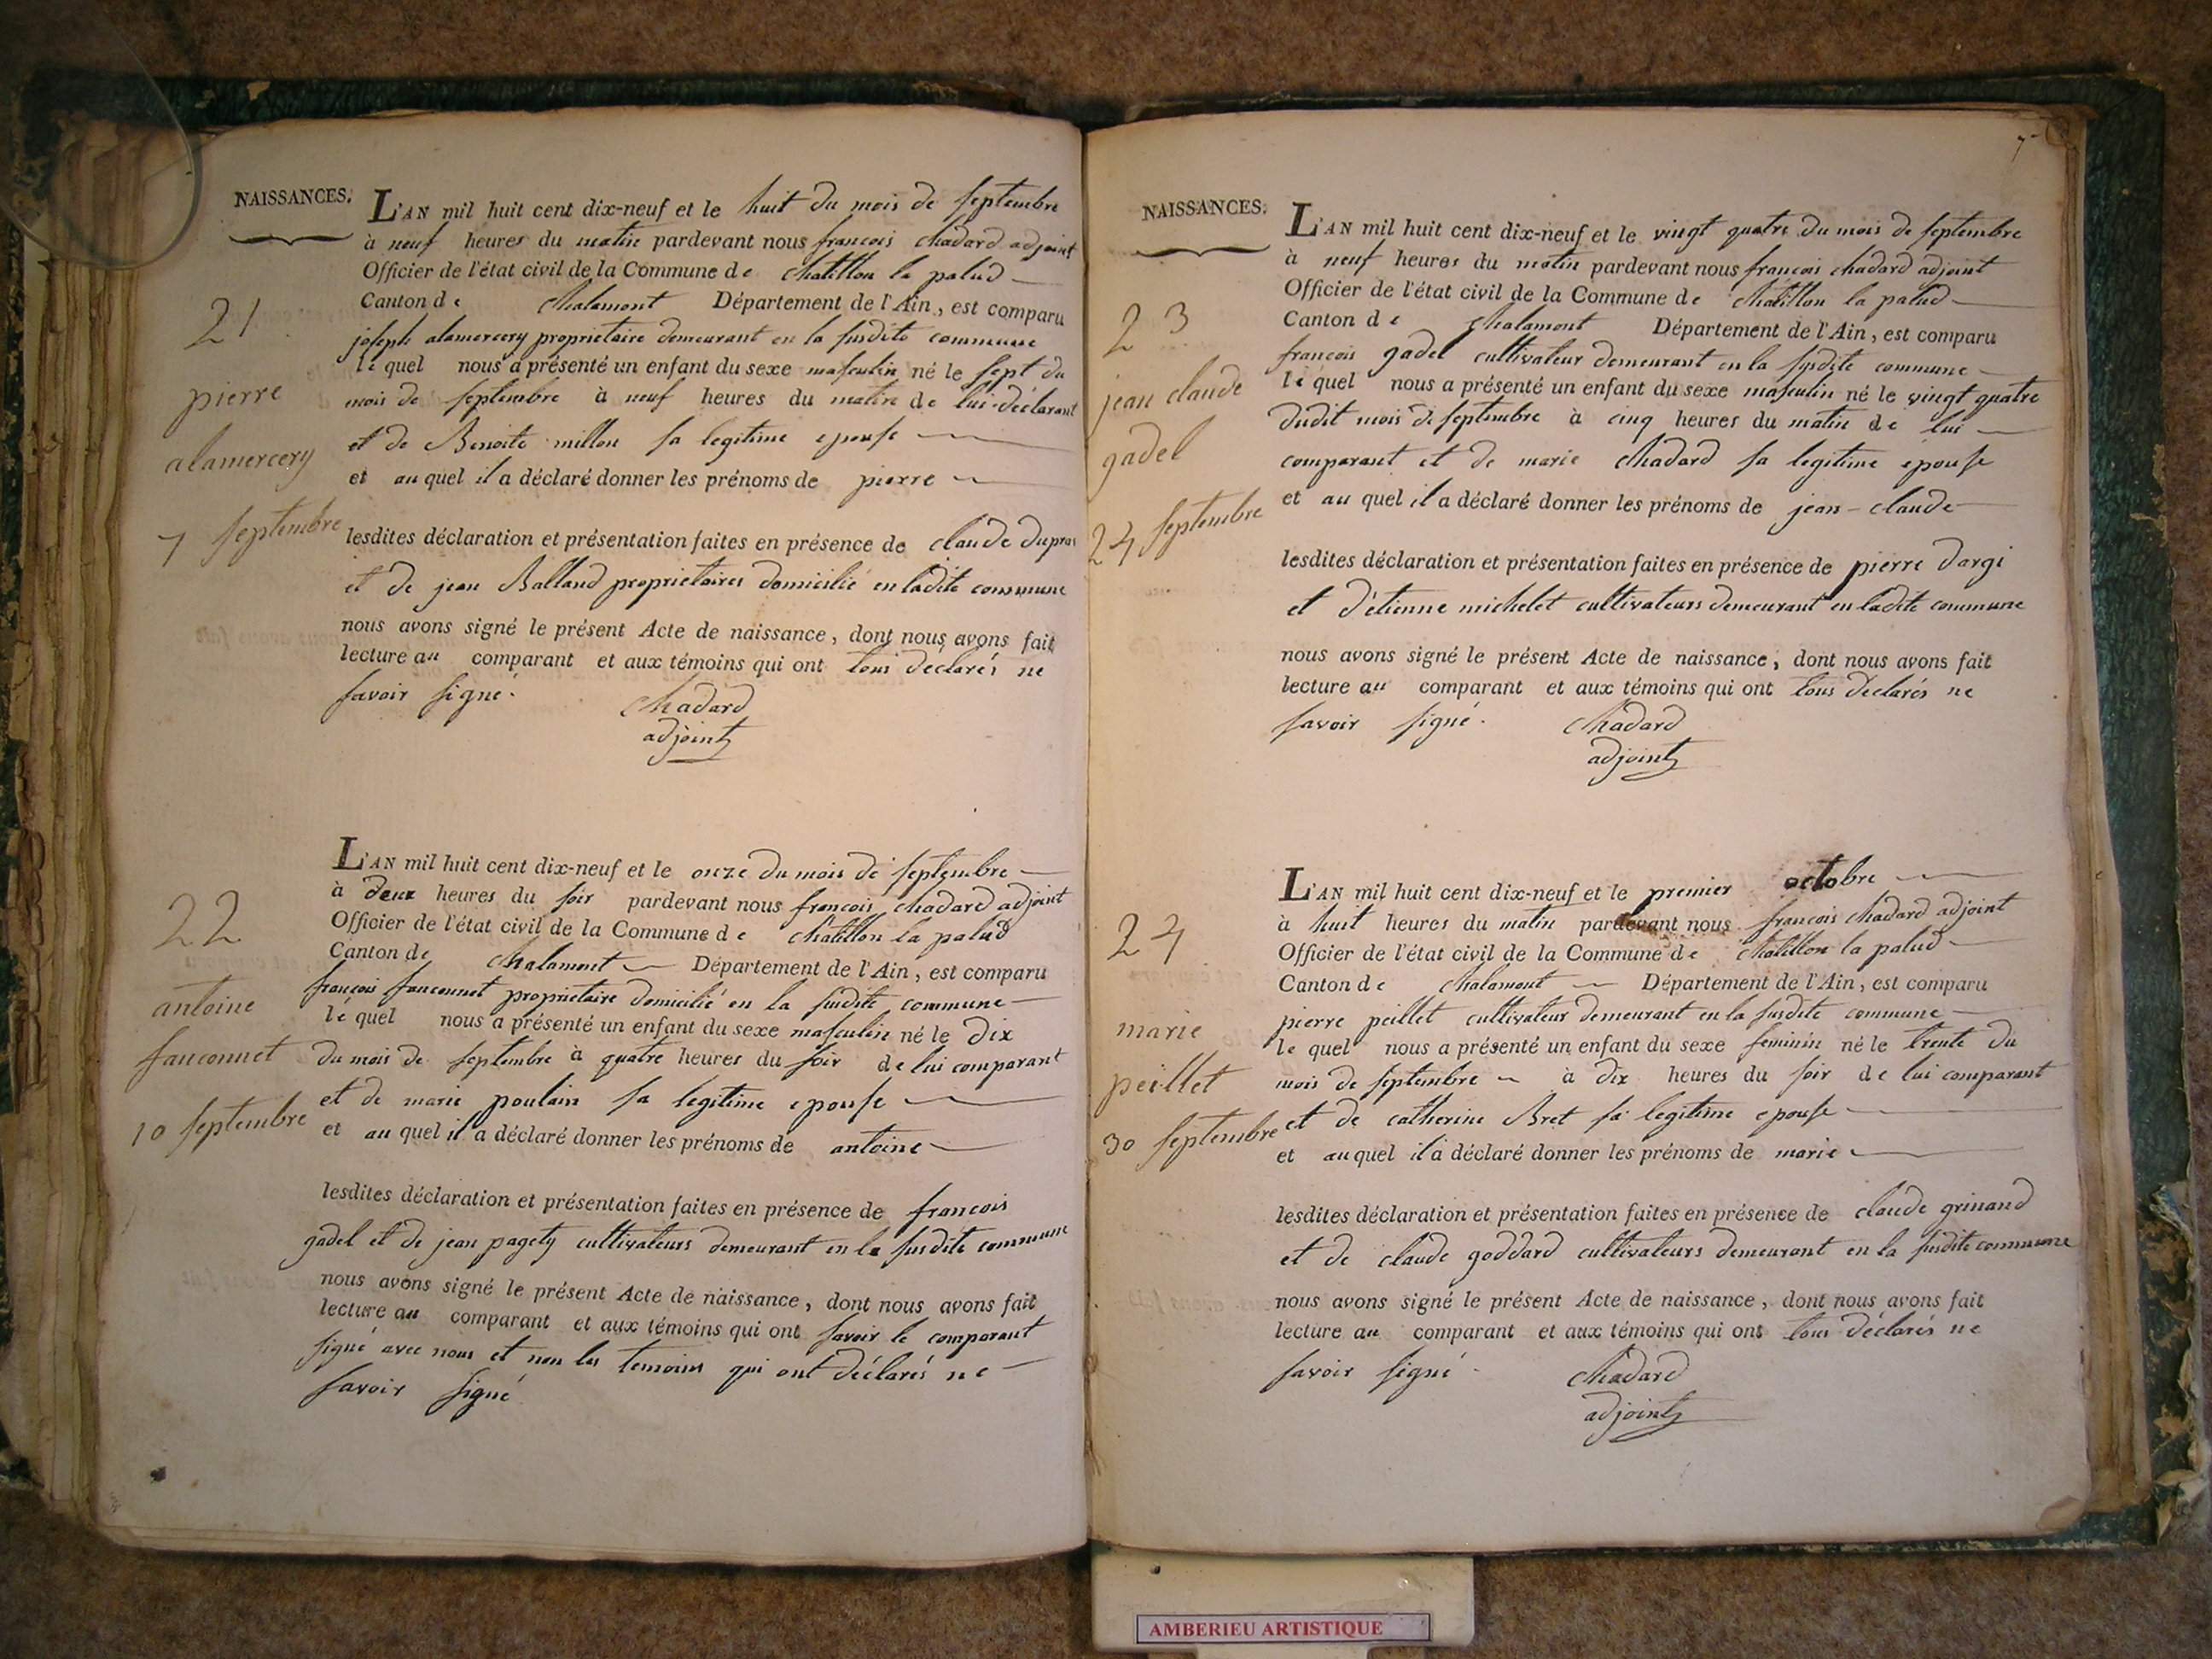 NAISSANCES.
L'AN mil huit cent dix-neuf et le huit du mois de septembre
à neuf heures du matin pardevant nous françois chadard adjoint
Officier de l'état civil de la Commune de chatillon la palud
Canton de chalamont Département de l'Ain, est comparu
joseph alamercery proprietaire demeurant en la susdite commune
lequel nous a présenté un enfant du sexe masculin né le sept du
mois de septembre à neuf heures du matin de lui déclarant
et de Benoite millon sa legitime epouse
et auquel il a déclaré donner les prénoms de pierre
lesdites déclaration et présentation faites en présence de claude dupras
et de jean Balland proprietaires domicilié en ladite commune
nous avons signé le présent Acte de naissance, dont nous avons fait
lecture au comparant et aux témoins qui ont tous déclarés ne
savoir signé.
chadard
adjoint
21
pierre
alamercery
7 septembre
L'AN mil huit cent dix-neuf et le onze du mois de septembre
à deux heures du soir pardevant nous françois chadard adjoint
Officier de l'état civil de la Commune de chatillon la palud
Canton de chalamont Département de l'Ain, est comparu
françois fauconnet proprietaire domicilié en la susdite commune
lequel nous a présenté un enfant du sexe masculin né le dix
du mois de septembre à quatre heures du soir de lui comparant
et de marie poulain sa legitime epouse
et auquel il a déclaré donner les prénoms de antoine
lesdites déclaration et présentation faites en présence de francois
gadel et de jean pagety cultivateurs demeurant en la susdite commune
nous avons signé le présent Acte de naissance, dont nous avons fait
lecture au comparant et aux témoins qui ont savoir le comparant
signé avec nous et non les temoins qui ont déclarés ne
savoir signé
22
antoine
fauconnet
10 septembre
7
NAISSANCES.
L'AN mil huit cent dix-neuf et le vingt quatre du mois de septembre
à neuf heures du matin pardevant nous françois chadard adjoint
Officier de l'état civil de la Commune de chatillon la palud
Canton de chalamont Département de l'Ain, est comparu
françois gadel cultivateur demeurant en la susdite commune
lequel nous a présenté un enfant du sexe masculin né le vingt quatre
dudit mois de septembre à cinq heures du matin de lui
comparant et de marie chadard sa legitime epouse
et auquel il a déclaré donner les prénoms de jean-claude
lesdites déclaration et présentation faites en présence de pierre dargi
et d'étienne michelet cultivateurs demeurant en ladite commune
nous avons signé le présent Acte de naissance, dont nous avons fait
lecture au comparant et aux témoins qui ont tous déclarés ne
savoir signé.
chadard
adjoint
23
jean claude
gadel
24 septembre
L'AN mil huit cent dix-neuf et le premier octobre
à huit heures du matin pardevant nous françois chadard adjoint
Officier de l'état civil de la Commune de chatillon la palud
Canton de chalamont Département de l'Ain, est comparu
pierre peillet cultivateur demeurant en la susdite commune
lequel nous a présenté un enfant du sexe feminin né le trente du
mois de septembre à dix heures du soir de lui comparant
et de catherine Bret sa legitime epouse
et auquel il a déclaré donner les prénoms de marie
lesdites déclaration et présentation faites en présence de claude grinand
et de claude goddard cultivateurs demeurant en la susdite commune
nous avons signé le présent Acte de naissance, dont nous avons fait
lecture au comparant et aux témoins qui ont tous déclarés ne
savoir signé.
chadard
adjoint
24
marie
peillet
30 septembre
AMBERIEU ARTISTIQUE